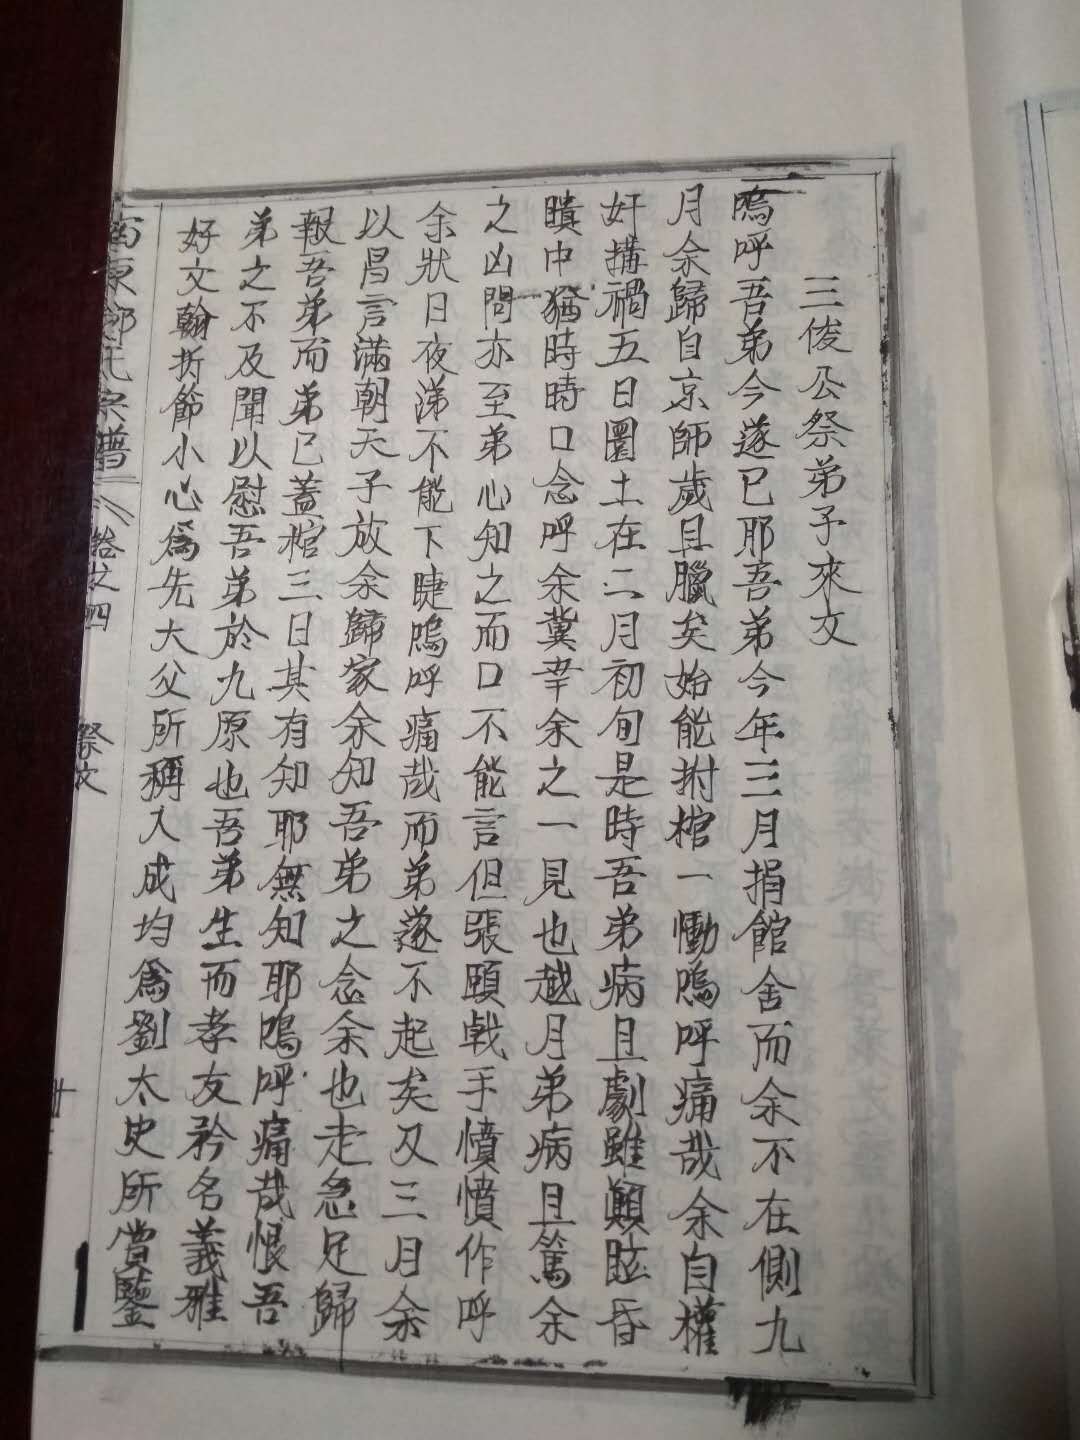 三俊公祭弟子來文
嗚呼吾弟今遂已耶吾弟今年三月捐館舍而余不在側九
月余歸自京師歲且臘矣始能拊棺一慟嗚呼痛哉余自權
奸搆禍五日圜土在二月初旬是時吾弟病且劇雖顚眩昏
瞶中猶時時口念呼余冀幸余之一見也越月弟病且篤余
之凶問亦至弟心知之而口不能言但張頤戟手憤憤作呼
余狀日夜涕不能下睫嗚呼痛哉而弟遂不起矣及三月余
以昌言滿朝天子放余歸家余知吾弟之念余也走急足歸
報吾弟而弟已蓋棺三日其有知耶無知耶嗚呼痛哉恨吾
弟之不及聞以慰吾弟於九原也吾弟生而孝友矜名義雅
好文翰折節小心爲先大父所稱入成均爲劉太史所賞鑒
原鄭氏宗譜 卷之四 祭文